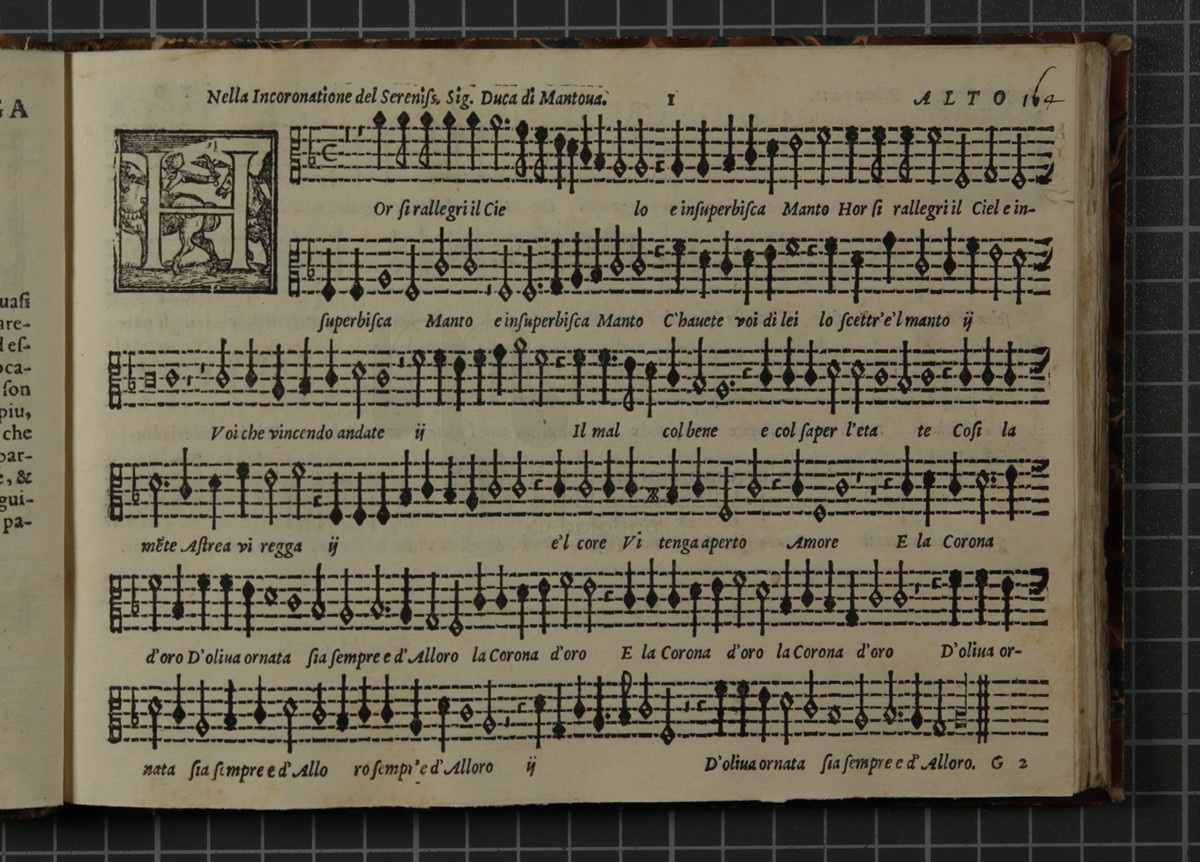 GA
uasi
are-
d eſ-
oca-
ſon
piu,
che
par-
e, &
gui-
pa-
Nella Incoronatione del Sereniſs. Sig. Duca di Mantoua. 1 ALTO 164
H
Or ſi rallegri il Cie lo e inſuperbiſca Manto Hor ſi rallegri il Ciel e in-
ſuperbiſca Manto e inſuperbiſca Manto C'hauete voi di lei lo ſcettr'e'l manto ij
Voi che vincendo andate ij Il mal col bene e col ſaper l'eta te Coſi la
mẽte Aſtrea vi regga ij e'l core Vi tenga aperto Amore E la Corona
d'oro D'oliua ornata ſia ſempre e d'Alloro la Corona d'oro E la Corona d'oro la Corona d'oro D'oliua or-
nata ſia ſempre e d'Allo ro ſempr'e d'Alloro ij D'oliua ornata ſia ſempre e d'Alloro. G 2